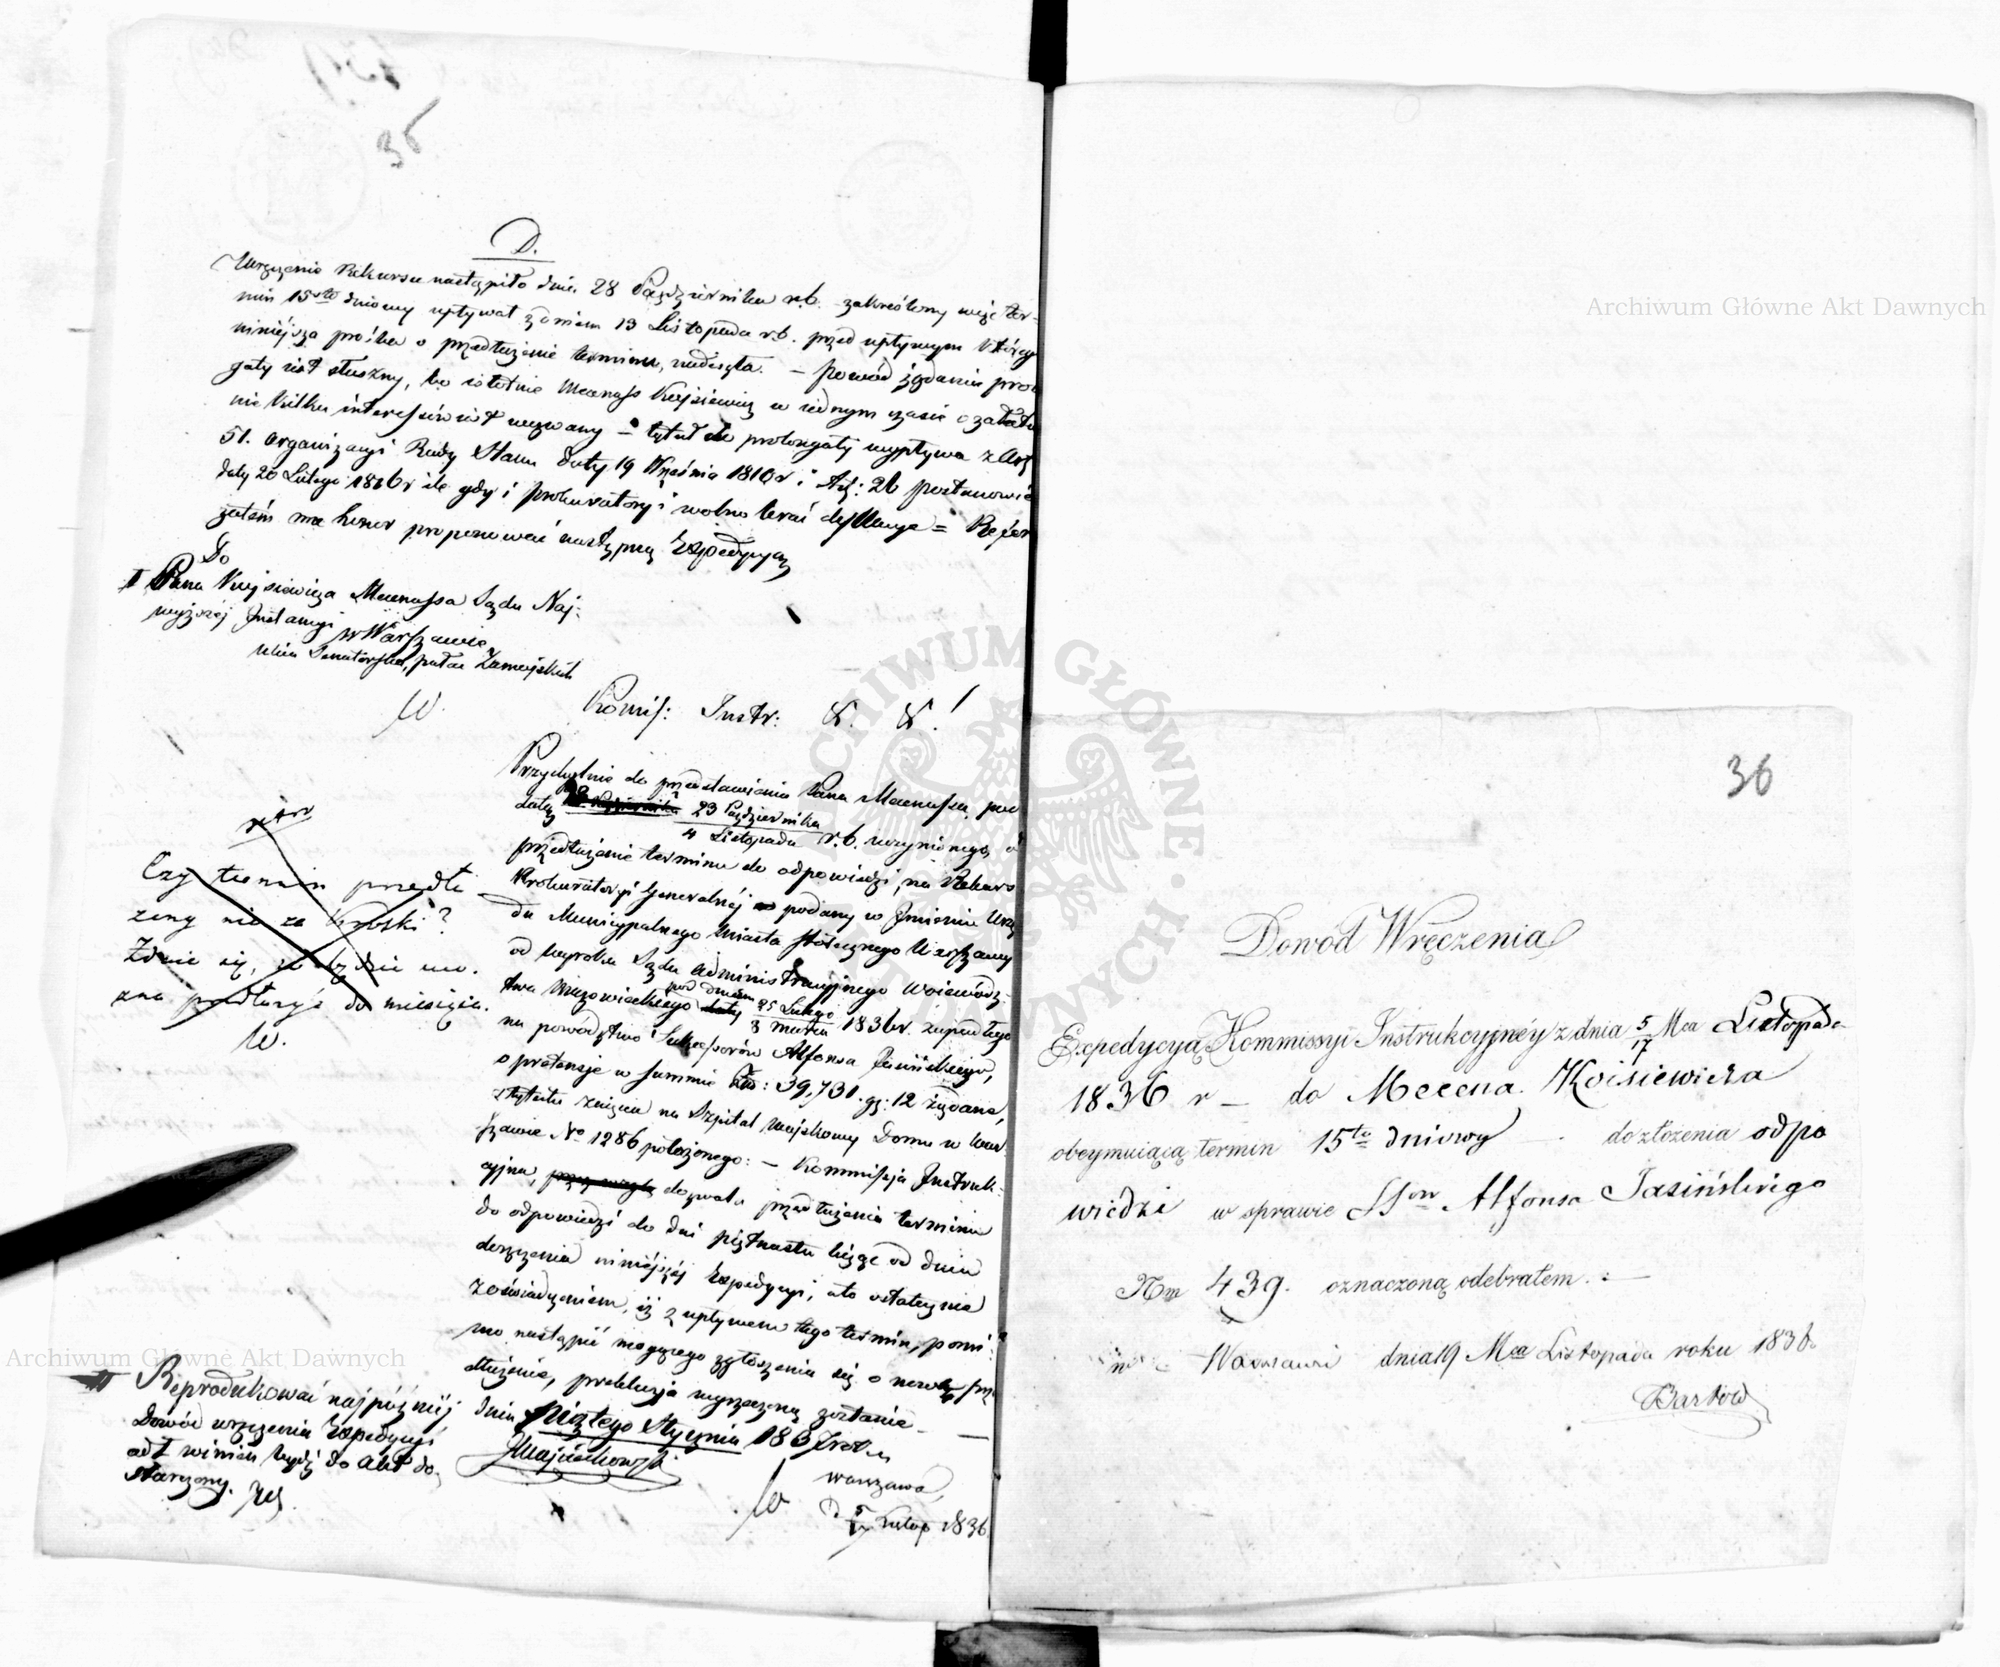 35
D.
Wręczenie Rekursu nastąpiło dnia 28 Października r.b. zakreślony więc ter-
min 15sto dniowy upływał z dniem 13 Listopada r.b. przed upływem którego
niniejsza prośba o przedłużenie terminu, nadeszła. – Powód żądania prolon
gaty jest słuszny, bo istotnie Mecenass Koysiewicz w jednym czasie o załatwie
nie kilku interessów jest wezwany – tytuł do prolongaty wypływa z Art
51. Organizacyi Rady Stanu daty 19 Września 1810 r i Art: 26 postanowie
daty 20 Lutego 1816 r ile gdy i Prokuratoryi wolno brać dyllacye = Refer
zatém ma honor proponować następną Expedycyą
Do
Pana Koysiewicza Mecenassa Sądu Naj-
wyższéj Instancyi w Warszawie
ulica Senatorska, pałac Zamojskich
W.
Komis: Instr: & &!
Przychylnie do przedstawienia Pana Mecenassa, pod
datą 23 Października
4 Listopada r.b. uczynionego, o
przedłużenie terminu do odpowiedzi, na Rekurs
Prokuratoryi Generalnéj podany w Imieniu Urzę
du Municypalnego Miasta Stołecznego Warszawy
od wyroku Sądu Administracyjnego Wojewódz-
twa Mazowieckiego pod dniem 25 Lutego
3 Marca 1836 r. zapadłego
na powództwo Sukcessorów Alfonsa Jasińskiego,
o pretensje w summie Złp: 39,731. gr: 12 żądaną,
z tytułu zajęcia na Szpital Wojskowy Domu w War
szawie No 1286 położonego: – Kommissja Instruk-
cyjna, dozwala przedłużenia terminu
do odpowiedzi do dni piętnastu licząc od dnia
doręczenia niniejszéj Expedycyi, a to ostatecznie
z oświadczeniem, iż z upływem tego termin, pomi-
mo nastąpić mogącego zgłoszenia się o nowe prze
dłużenie, prekluzja wyrzeczoną zostanie –
dnia piątego Stycznia 1837 roku
JWojciechowski
W.
Warszawa,
D. 5/17 Listop 1836
Czy termin przedłu
żony nie za krótki?
Zdaje się, że będzie mo.
żna przedłużyć do miesiąca.
W.
Reprodukować najpóźniéj
Dowód wręczenia Expedycyi
adt winien bydź do Akt do-
starczony.
36
Dowód Wręczenia
Expedycyą Kommissyi Instrukcyjnéy z dnia 5/17 Mca Listopada
1836 r – do Mecena. Koisiewicza
obeymuiącą termin 15to dniowy – do złożenia odpo
wiedzi w sprawie SSów Alfonsa Jasińskiego
Nm 439. oznaczoną odebrałem. –
w Warszawi dnia 19 Mca Listopada roku 1836
Bartold
Archiwum Główne Akt Dawnych
Archiwum Główne Akt Dawnych
ARCHIWUM GŁÓWNE AKT DAWNYCH